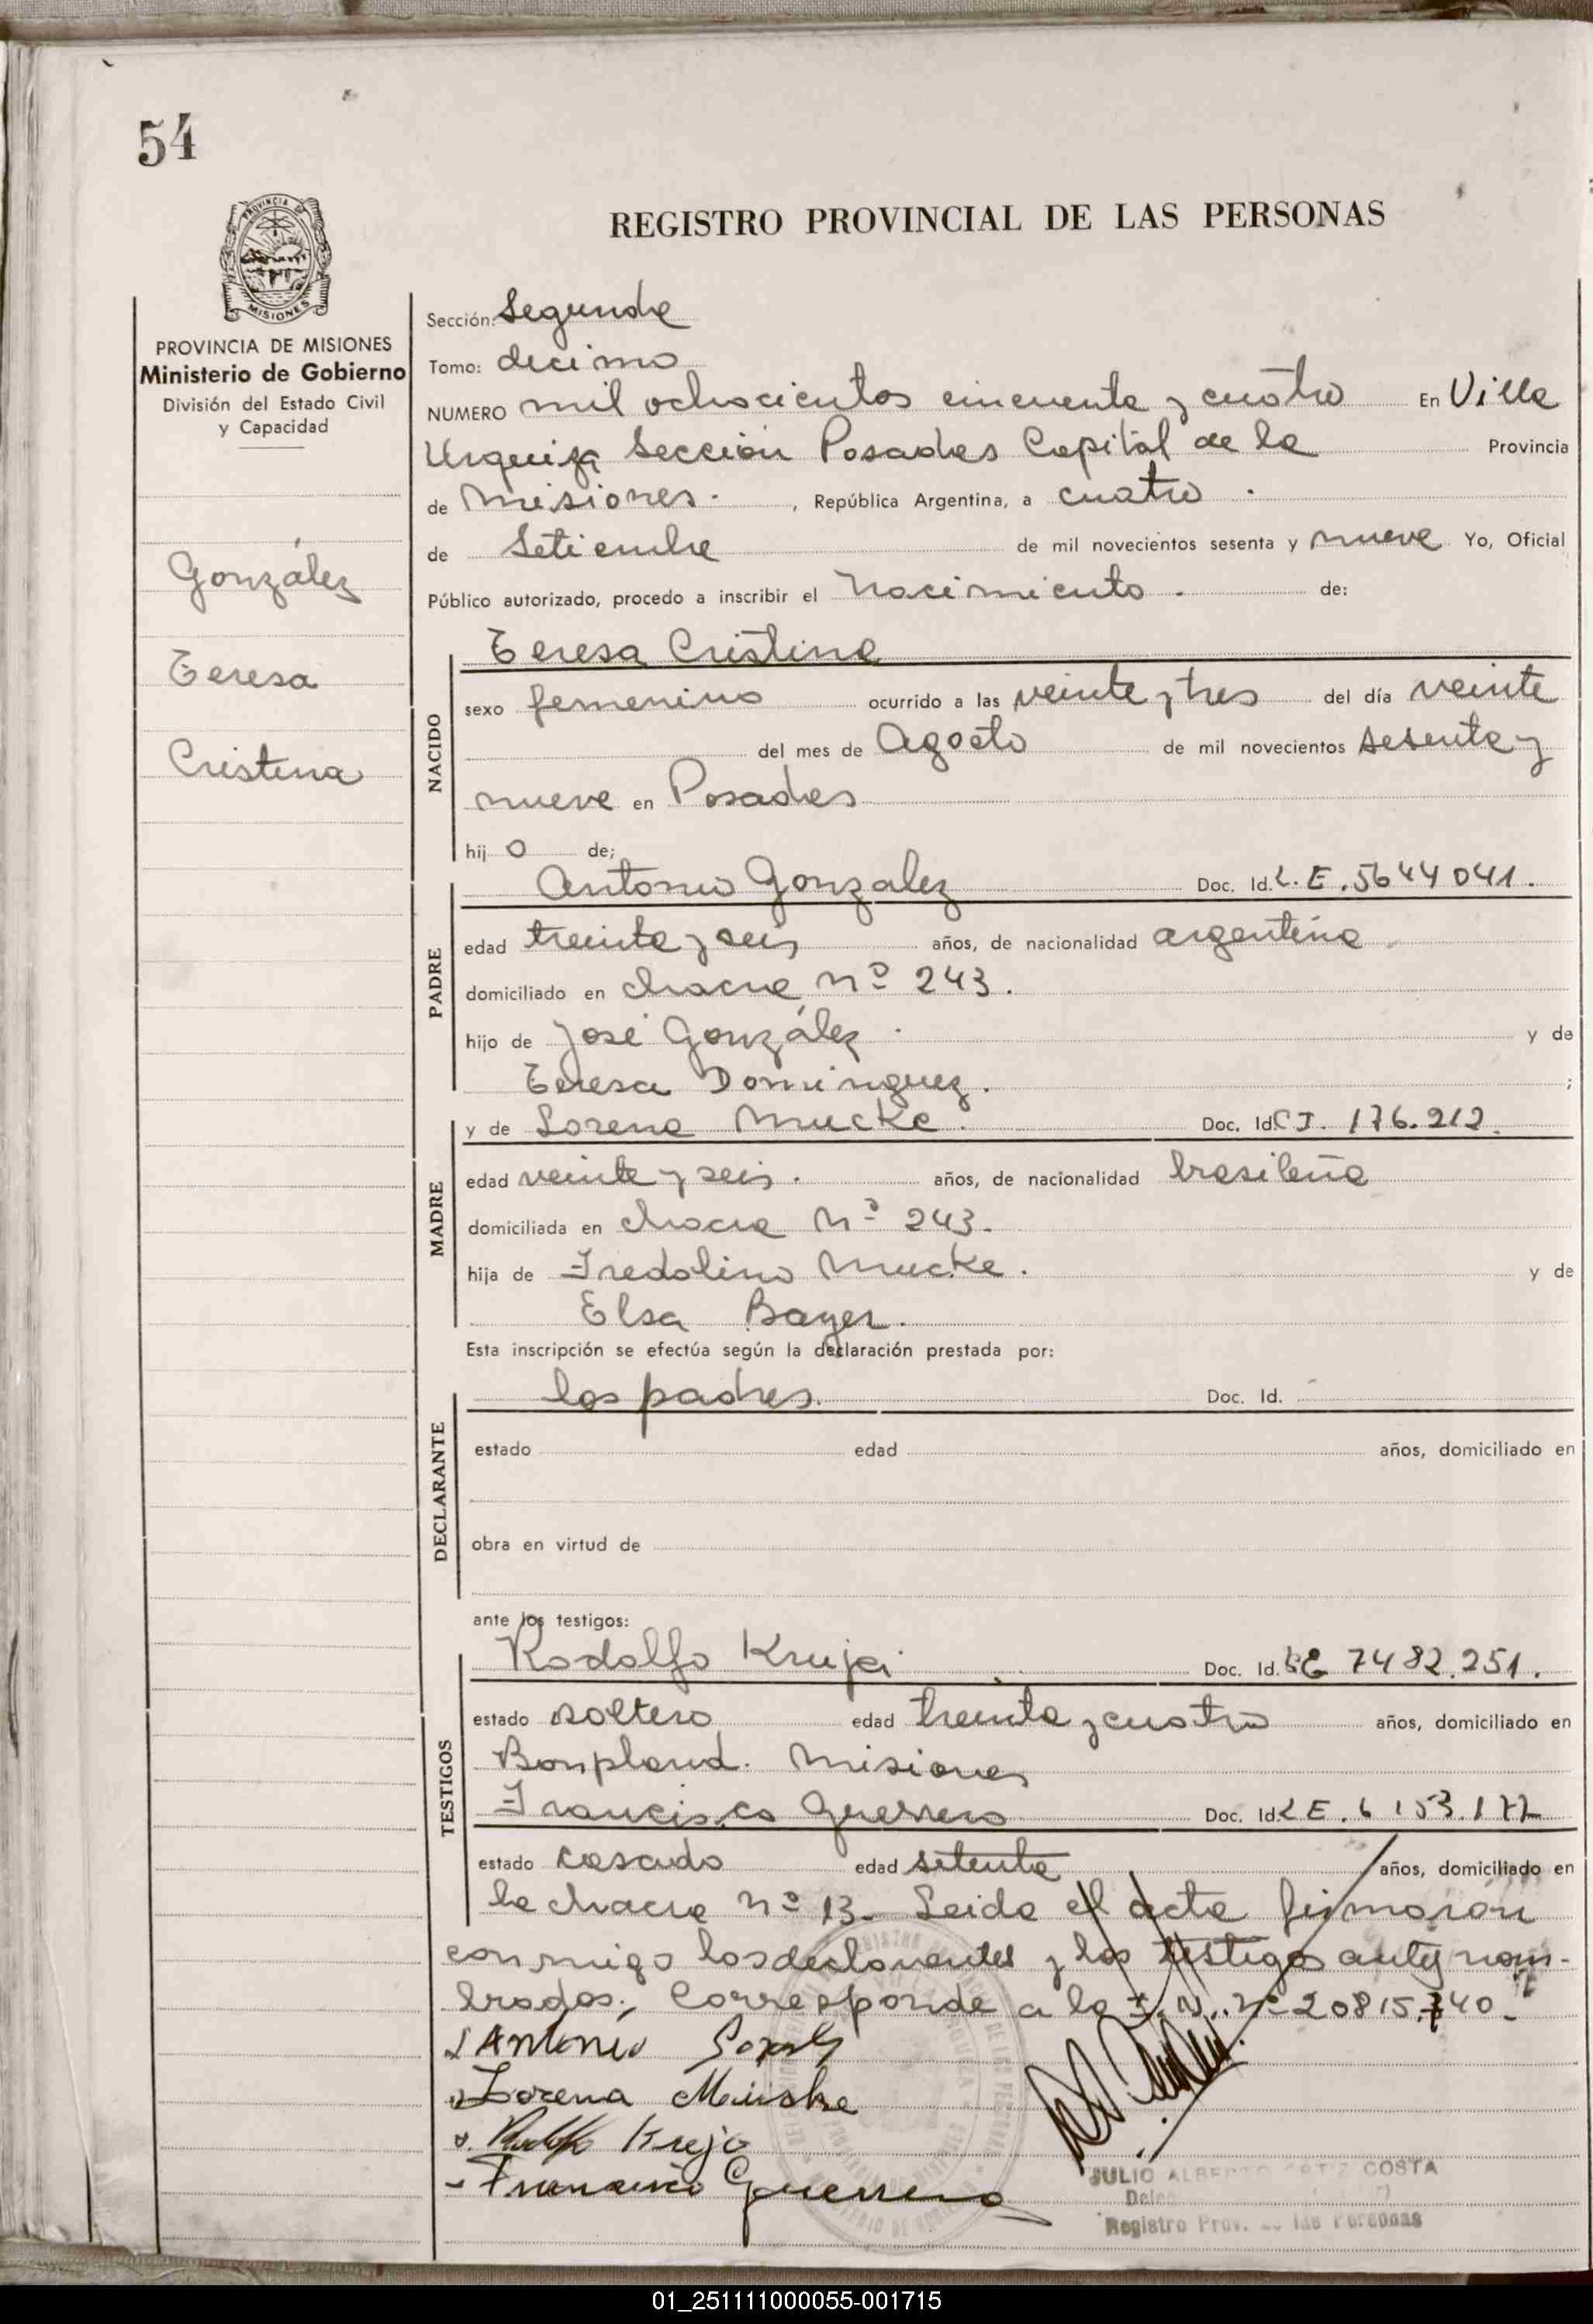 54
PROVINCIA DE
MISIONES
PROVINCIA DE MISIONES
Ministerio de Gobierno
División del Estado Civil
y Capacidad
González
Teresa
Cristina
REGISTRO PROVINCIAL DE LAS PERSONAS
Sección: Segunda
Tomo: decimo
NUMERO mil ochocientos cincuenta y cuatro En Villa
Urquiza Sección Posadas Capital de la Provincia
de Misiones. , República Argentina, a cuatro .
de Setiembre de mil novecientos sesenta y nueve Yo, Oficial
Público autorizado, procedo a inscribir el nacimiento . de:
NACIDO
Teresa Cristina
sexo femenino ocurrido a las veinte y tres del día veinte
del mes de Agosto de mil novecientos sesenta y
nueve en Posadas
hij o de;
PADRE
Antonio Gonzalez Doc. Id. L. E. 5644041.
edad treinta y seis años, de nacionalidad argentina
domiciliado en chacra nº 243.
hijo de José González . y de
Teresa Dominguez. ;
MADRE
y de Lorena Mucke. Doc. Id. C I. 176.212.
edad veinte y seis . años, de nacionalidad brasileña
domiciliada en chacra nº 243.
hija de Fredolino Mucke . y de
Elsa Bayer.
Esta inscripción se efectúa según la declaración prestada por:
DECLARANTE
los padres. Doc. Id.
estado edad años, domiciliado en
obra en virtud de
ante los testigos:
TESTIGOS
Rodolfo Doc. Id. LE 7482.251.
estado soltero edad treinta y cuatro años, domiciliado en
Bonpland. Misiones
Francisco Guerrero Doc. Id. L E. 6 153.177
estado casado edad setenta años, domiciliado en
la chacra nº 13. Leida el acta firmaron
conmigo los declarantes y los testigos antes nom-
brados; Corresponde a la nº 20815.740.
Antonio
Lorena
Francisco Guerrero
JULIO ALBERTO ORTIZ COSTA
Registro Prov. de las Personas
01_251111000055-001715